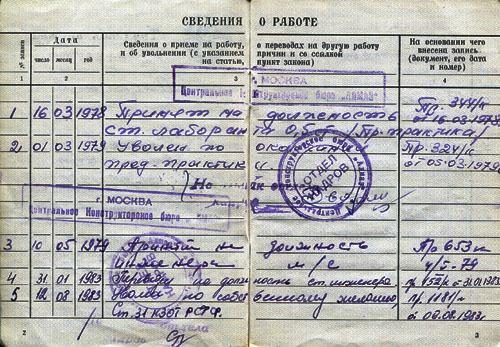 СВЕДЕНИЯ О РАБОТЕ
№ записи
Дата
число месяц год
Сведения о приеме на работу, о переводах на другую работу
и об увольнении (с указанием причин и со ссылкой
на статью, пункт закона)
На основании чего
внесена запись
(документ, его дата
и номер)
1 2 3 4
г. МОСКВА
Центральное Конструкторское бюро "АЛМАЗ"
1 16 03 1978 Принят на должность Пр. 344/к
ст. лаборанта 0,5 (Пр. практика) от 16.03.1978
2 01 03 1979 Уволен по окончании Пр. 324/к
пред. практики от 05.03.1979
ОТДЕЛ КАДРОВ
г. МОСКВА
Центральное Конструкторское бюро
3 10 05 1979 Принят на должность Пр 653к
инженера м/с 4/5-79
4 31 01 1983 Переведен на должность ст. инженера
5 12 08 1983 Уволен по собственному желанию пр 1181/к
Ст. 31 КЗОТ РСФСР. от 09.08.1983г.
2 3